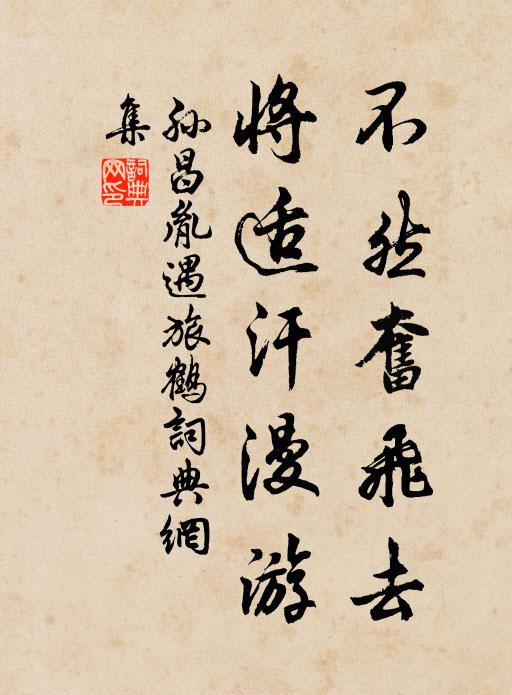 不然奮飛去
將适汗漫游
孫昌胤遇旅鶴詞典網
集
詞典
网印